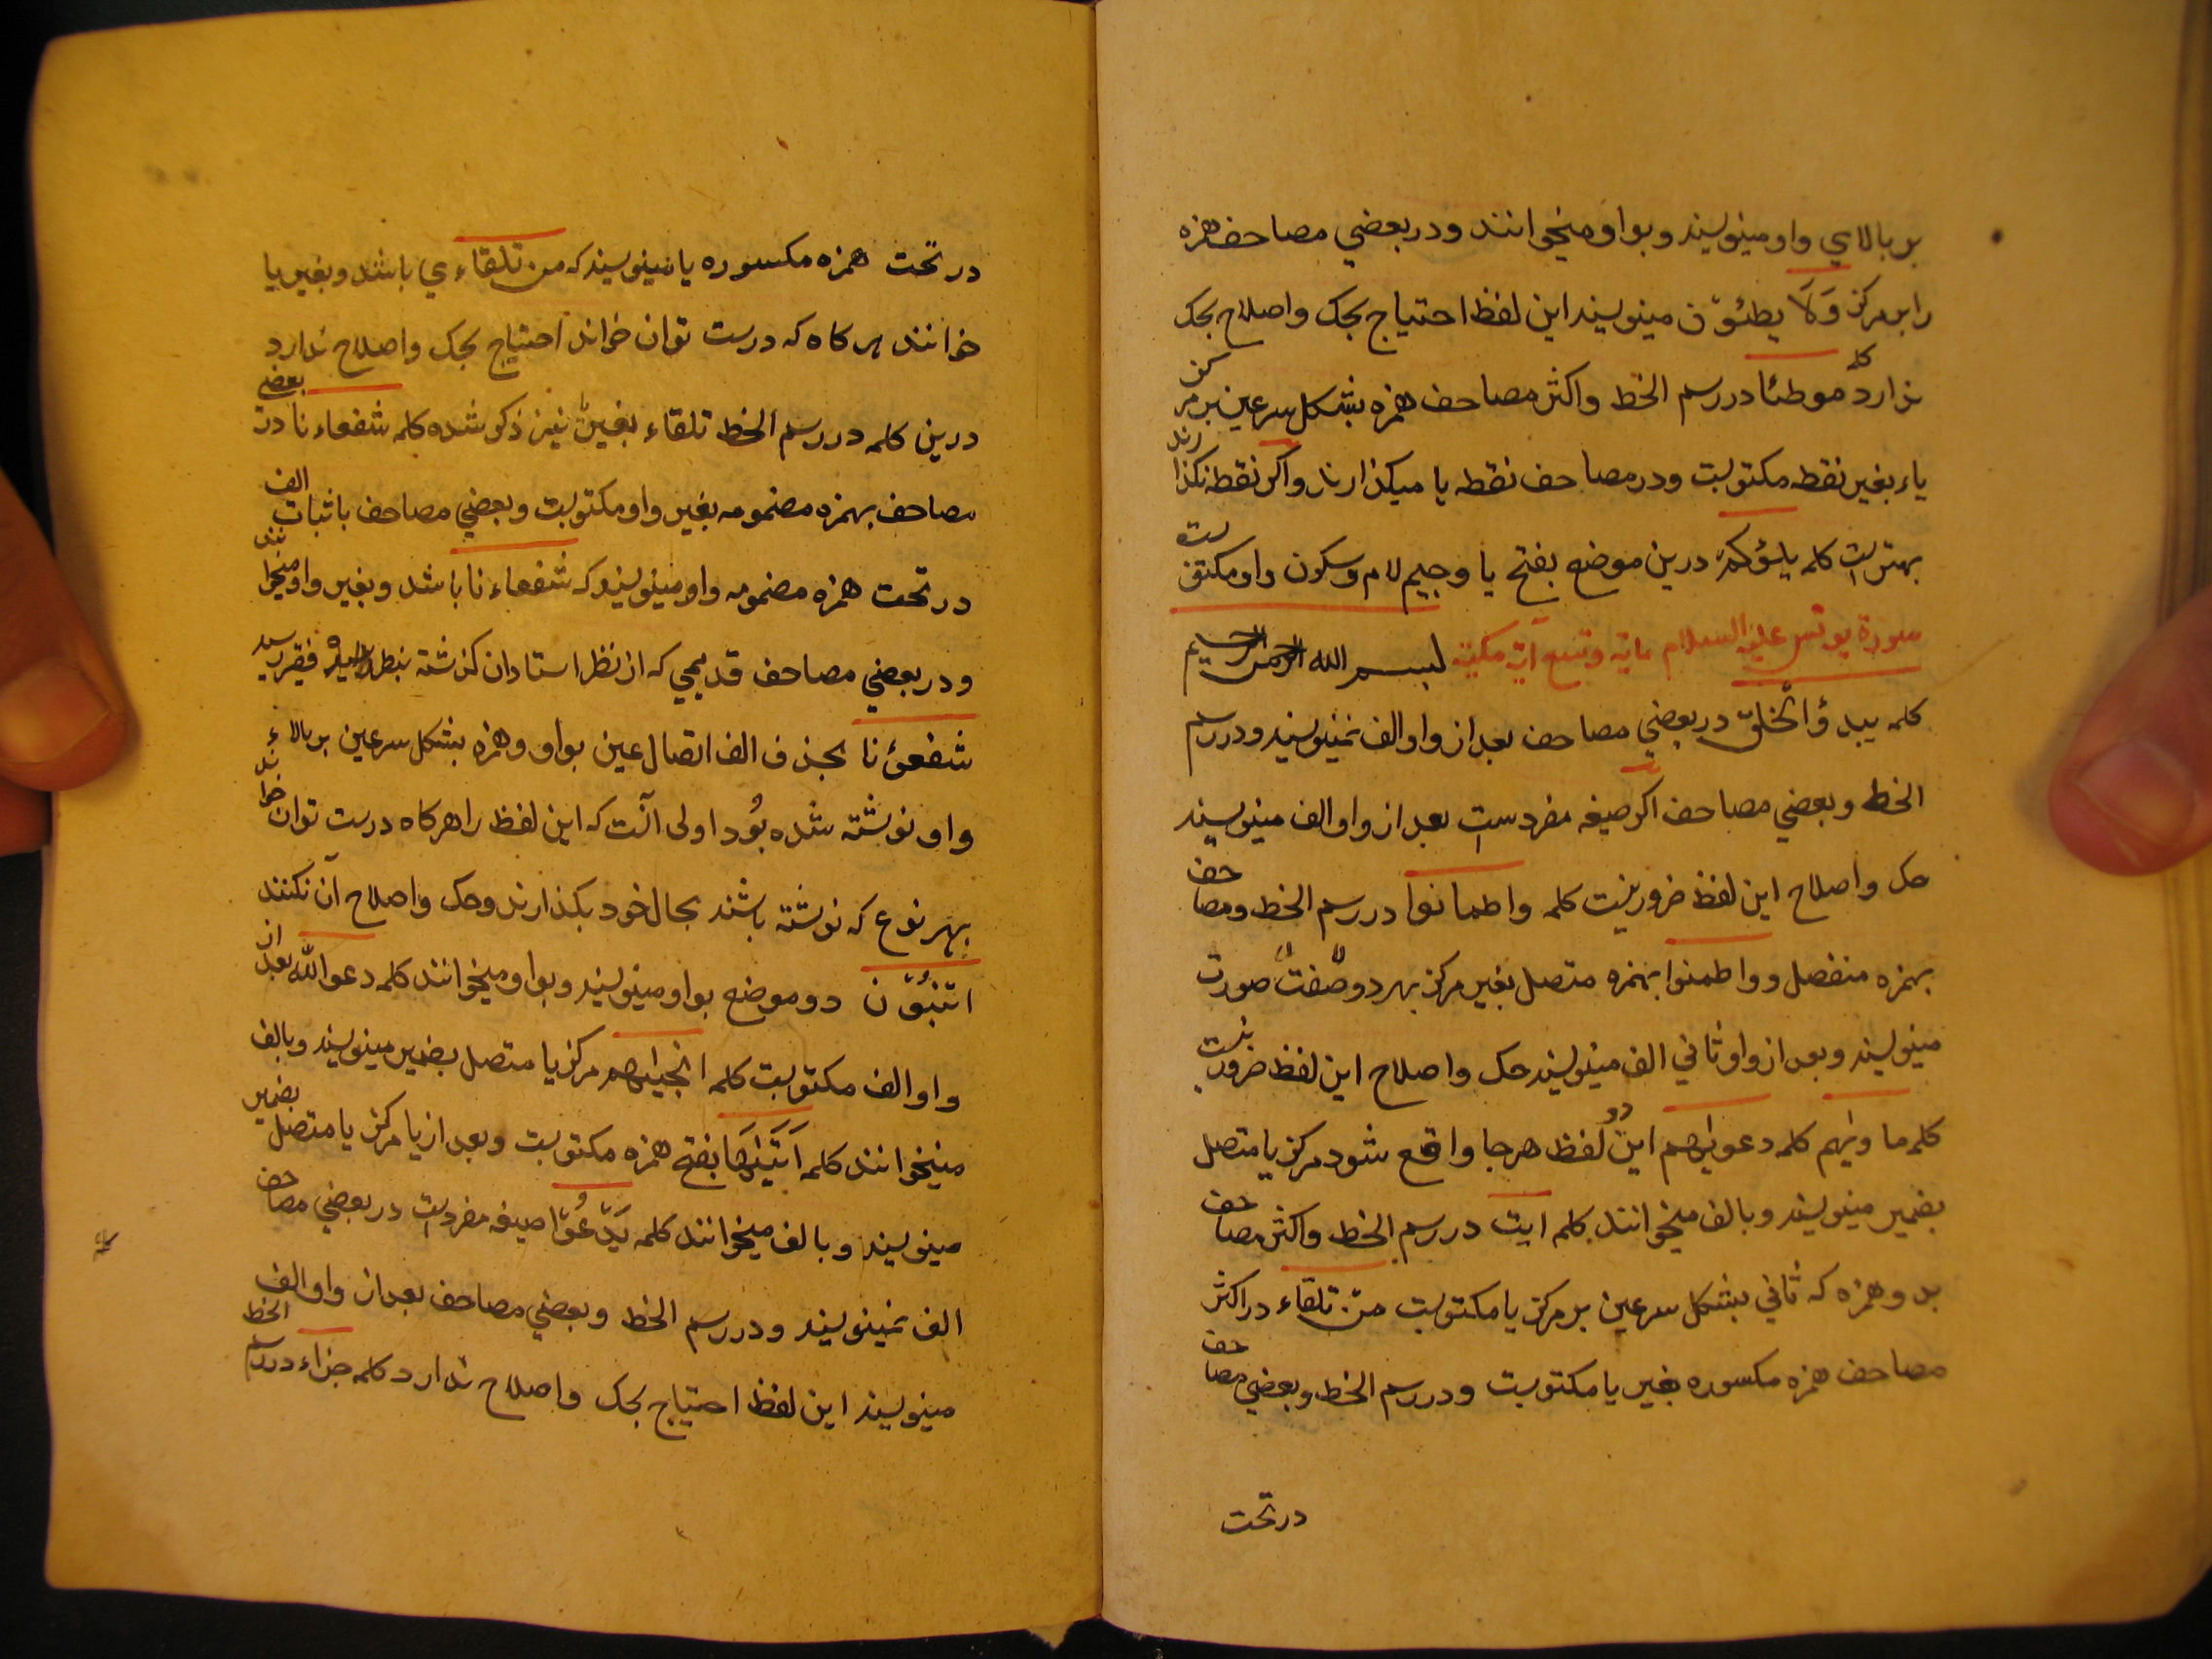 بر بالاي واو مينويسند وبواو ميخوانند ودر بعضي مصاحف همزه
را بر مركز وَلَا يطئوّن مينويسند اين لفظ احتياج بحك واصلاح بحك
ندارد كلمه موطئا در رسم الخط واكثر مصاحف همزه بشكل سر عين بر مركز
ياء بغير نقطه مكتوبست ودر مصاحف نقطه يا ميكذارند واكر نقطه نكذارند
بهترست كلمه يلؤكم درين موضع بفتح يا وجيم لام وسكون واو مكتوبست
سورة يونس عليه السلام ماية وتسع آية مكية بسم الله الرحمن الرحيم
كلمه يبدؤ الخلق در بعضي مصاحف بعد از واو الف نمينويسند ودر رسم
الخط وبعضي مصاحف اكر صيغه مفردست بعد از واو الف مينويسند
حك واصلاح اين لفظ ضرور نيست كلمه واطمانوا در رسم الخط ومصاحف
بهمزه منفصل وواطمنوا بهمزه متصل بغير مركز بهر دو صفت صورت
مينويسند وبعد از واو ثاني الف مينويسند حك واصلاح اين لفظ ضرور نيست
كلمه ماويهم كلمه دعويهم اين دو لفظ هرجا واقع شود مركز يا متصل
بضمير مينويسند وبالف ميخوانند كلمه ايت در رسم الخط واكثر مصاحف
بد وهمزه كه ثاني بشكل سر عين بر مركز يا مكتوبست من تلقاء در اكثر
مصاحف همزه مكسوره بغير يا مكتوبست ودر رسم الخط وبعضي مصاحف
در تحت
در تحت همزه مكسوره يا مينويسند كه من تلقاءي باشد وبغير يا
خوانند هر كاه كه درست توان خواند احتياج بحك واصلاح ندارد
درين كلمه در رسم الخط تلقاء بغير يا نيز ذكر شده كلمه شفعاءنا در بعضي
مصاحف بهمزه مضمومه بغير واو مكتوبست وبعضي مصاحف باثبات الف
در تحت همزه مضمومه واو مينويسند كه شفعاءنا باشد وبغير واو ميخوانند
ودر بعضي مصاحف قديمي كه از نظر استادان كذشته بنظر فقير رسيد
شفعؤنا بحذف الف اتصال عين بواو وهمزه بشكل سر عين بر بالاء
واو نوشته شده بُود اولى آنست كه اين لفظ را هركاه درست توان خواند
بهر نوع كه نوشته باشند بحال خود بكذارند وحك واصلاح آن نكنند
اتنبؤن دو موضع بواو مينويسند وبواو ميخوانند كلمه دعوا الله بعد از
واو الف مكتوبست كلمه انجيهم مركز يا متصل بضمير مينويسند وبالف
ميخوانند كلمه اَتَيهَا بفتح همزه مكتوبست وبعد از يا مركز يا متصل بضمير
مينويسند وبالف ميخوانند كلمه يَدْعُوا صيغه مفردست در بعضي مصاحف
الف نمينويسند ودر رسم الخط وبعضي مصاحف بعد از واو الف
مينويسند اين لفظ احتياج بحك واصلاح ندارد كلمه جزاء در رسم الخط